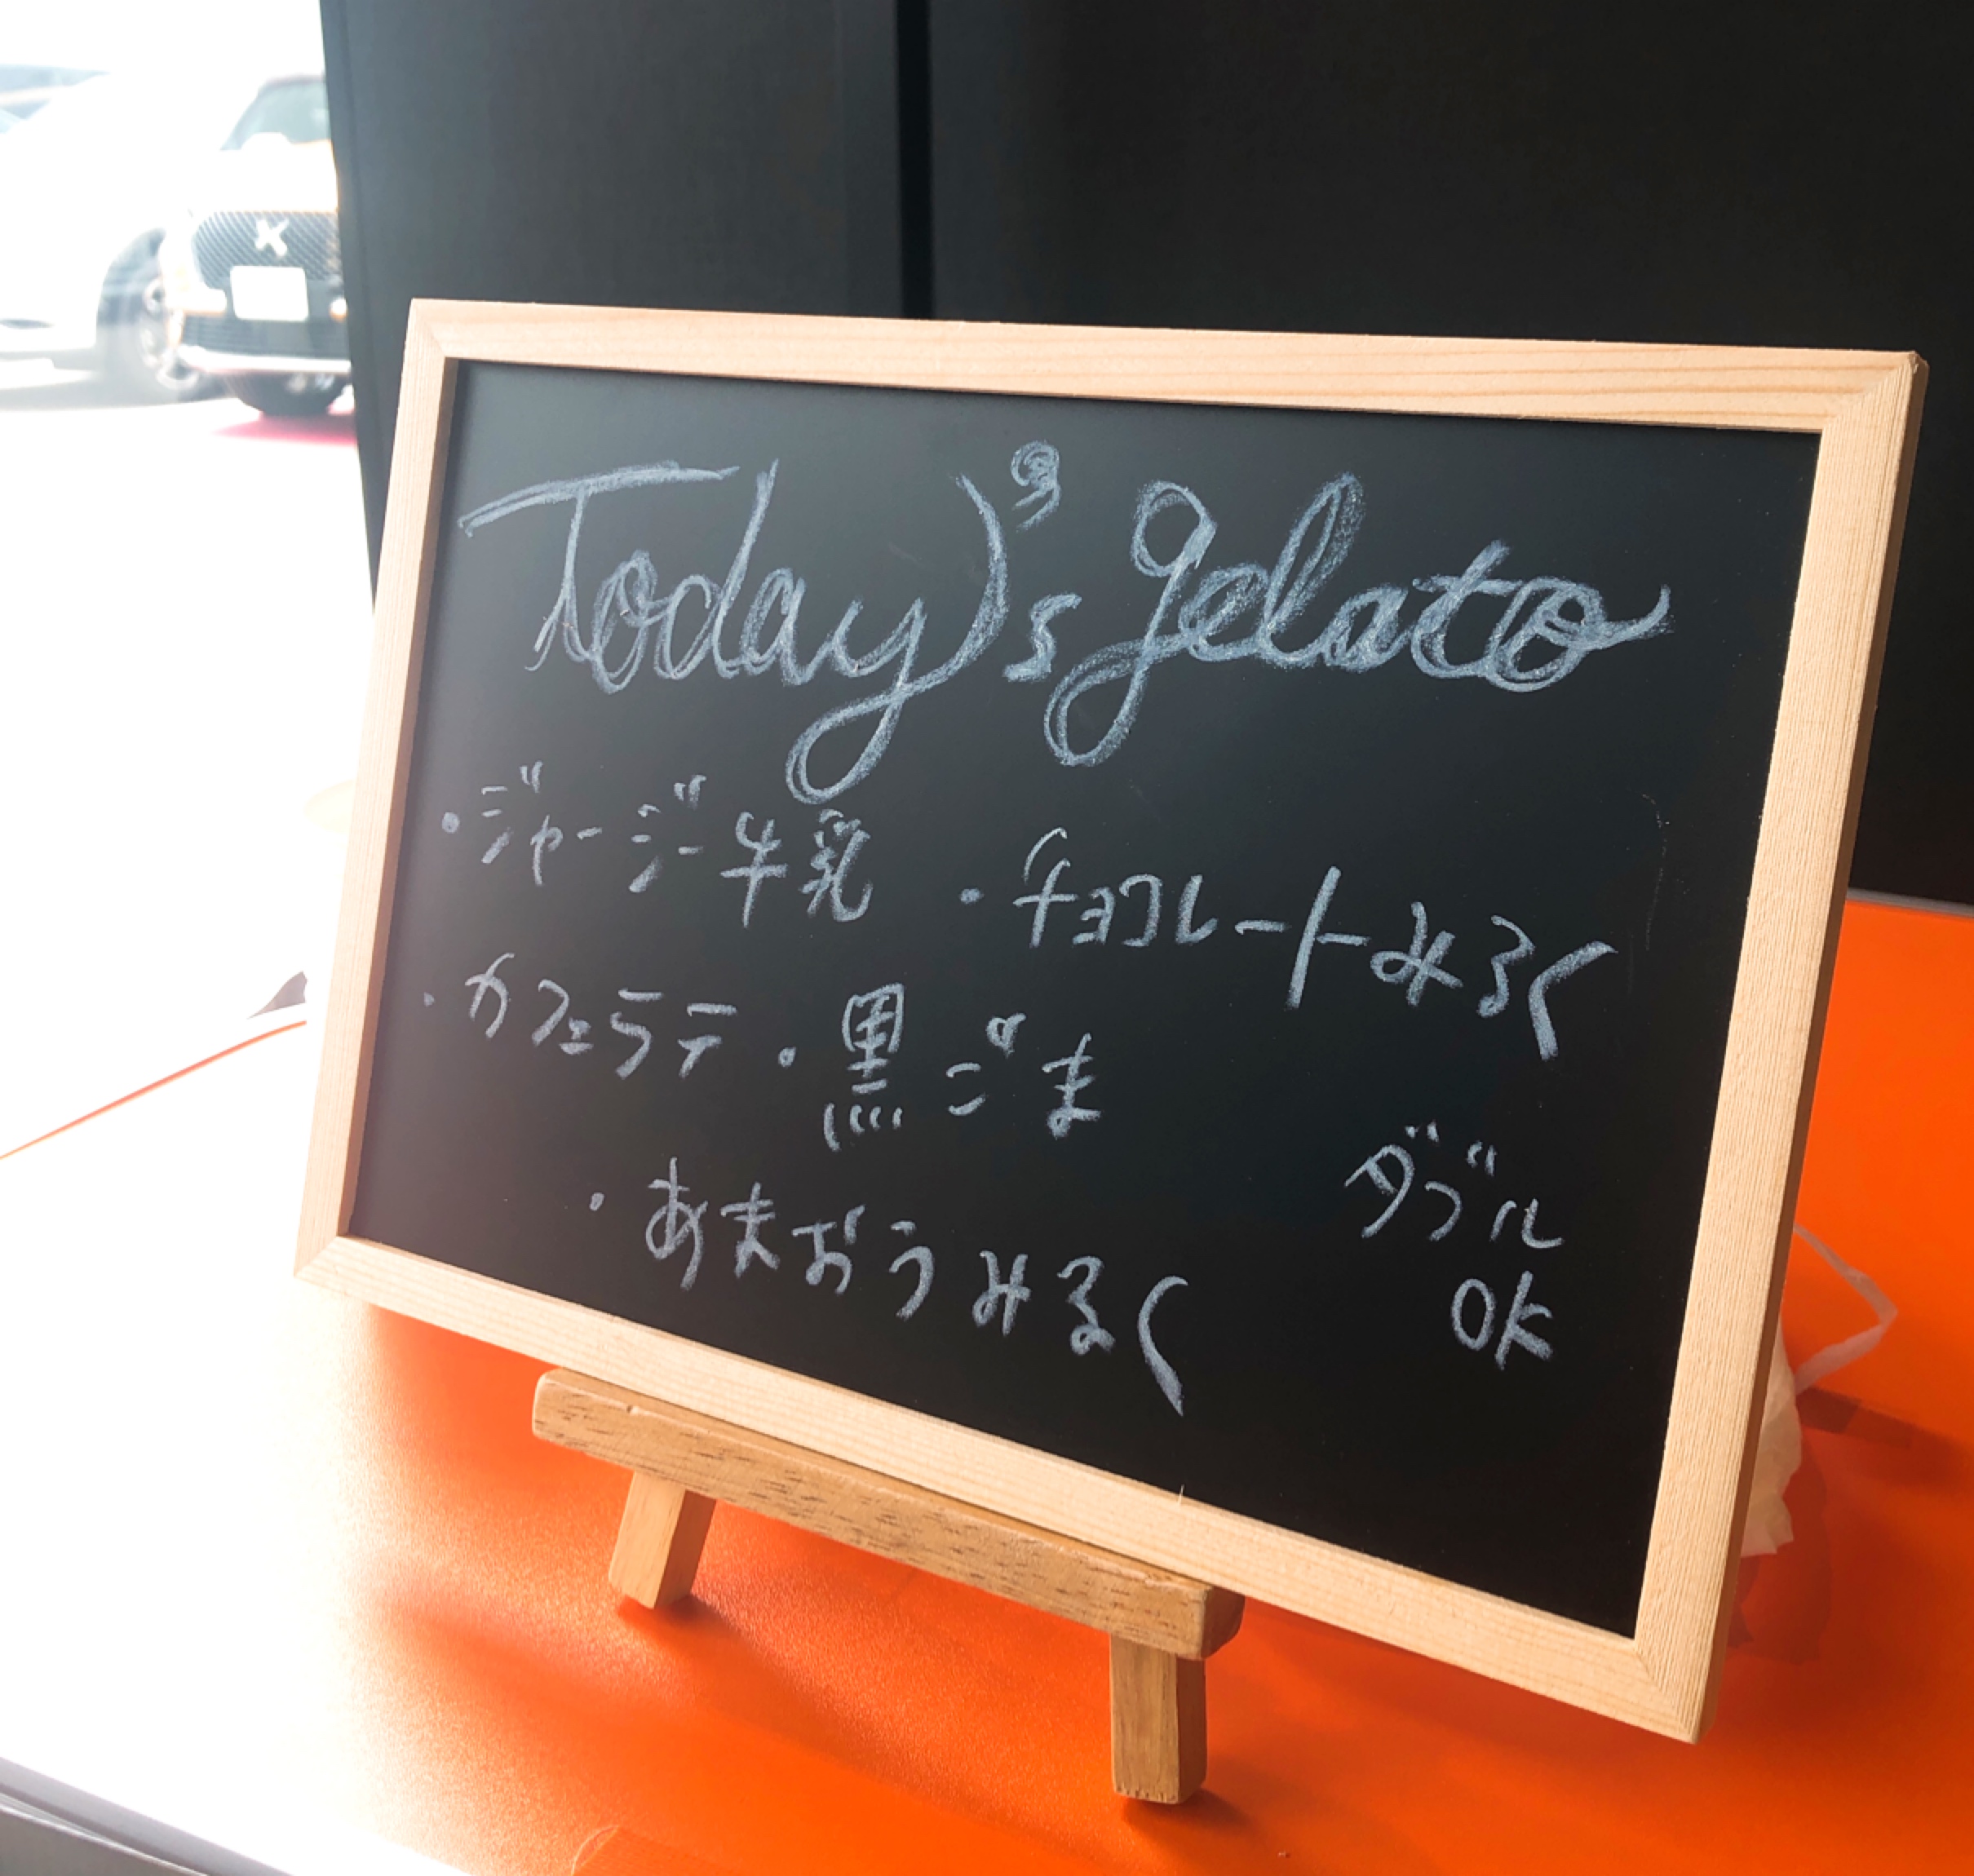 Today's gelato
・ジャージー牛乳 ・チョコレートみるく
・カフェラテ ・黒ごま
・あまおうみるく
ダブル
OK